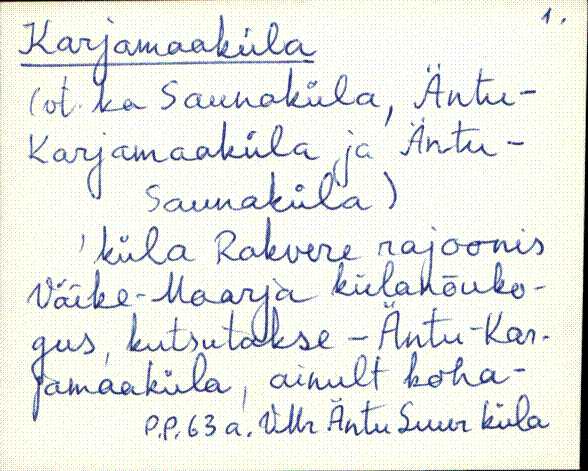 1.
Karjamaaküla
(vt. ka Saunaküla, Äntu-
Karjamaaküla ja Äntu-
Saunaküla)
'küla Rakvere rajoonis
Väike-Maarja külanõuko-
gus, kutsutakse - Äntu-Kar-
jamaaküla, ainult koha-
P.P. 63 a. VMr Äntu Suur küla